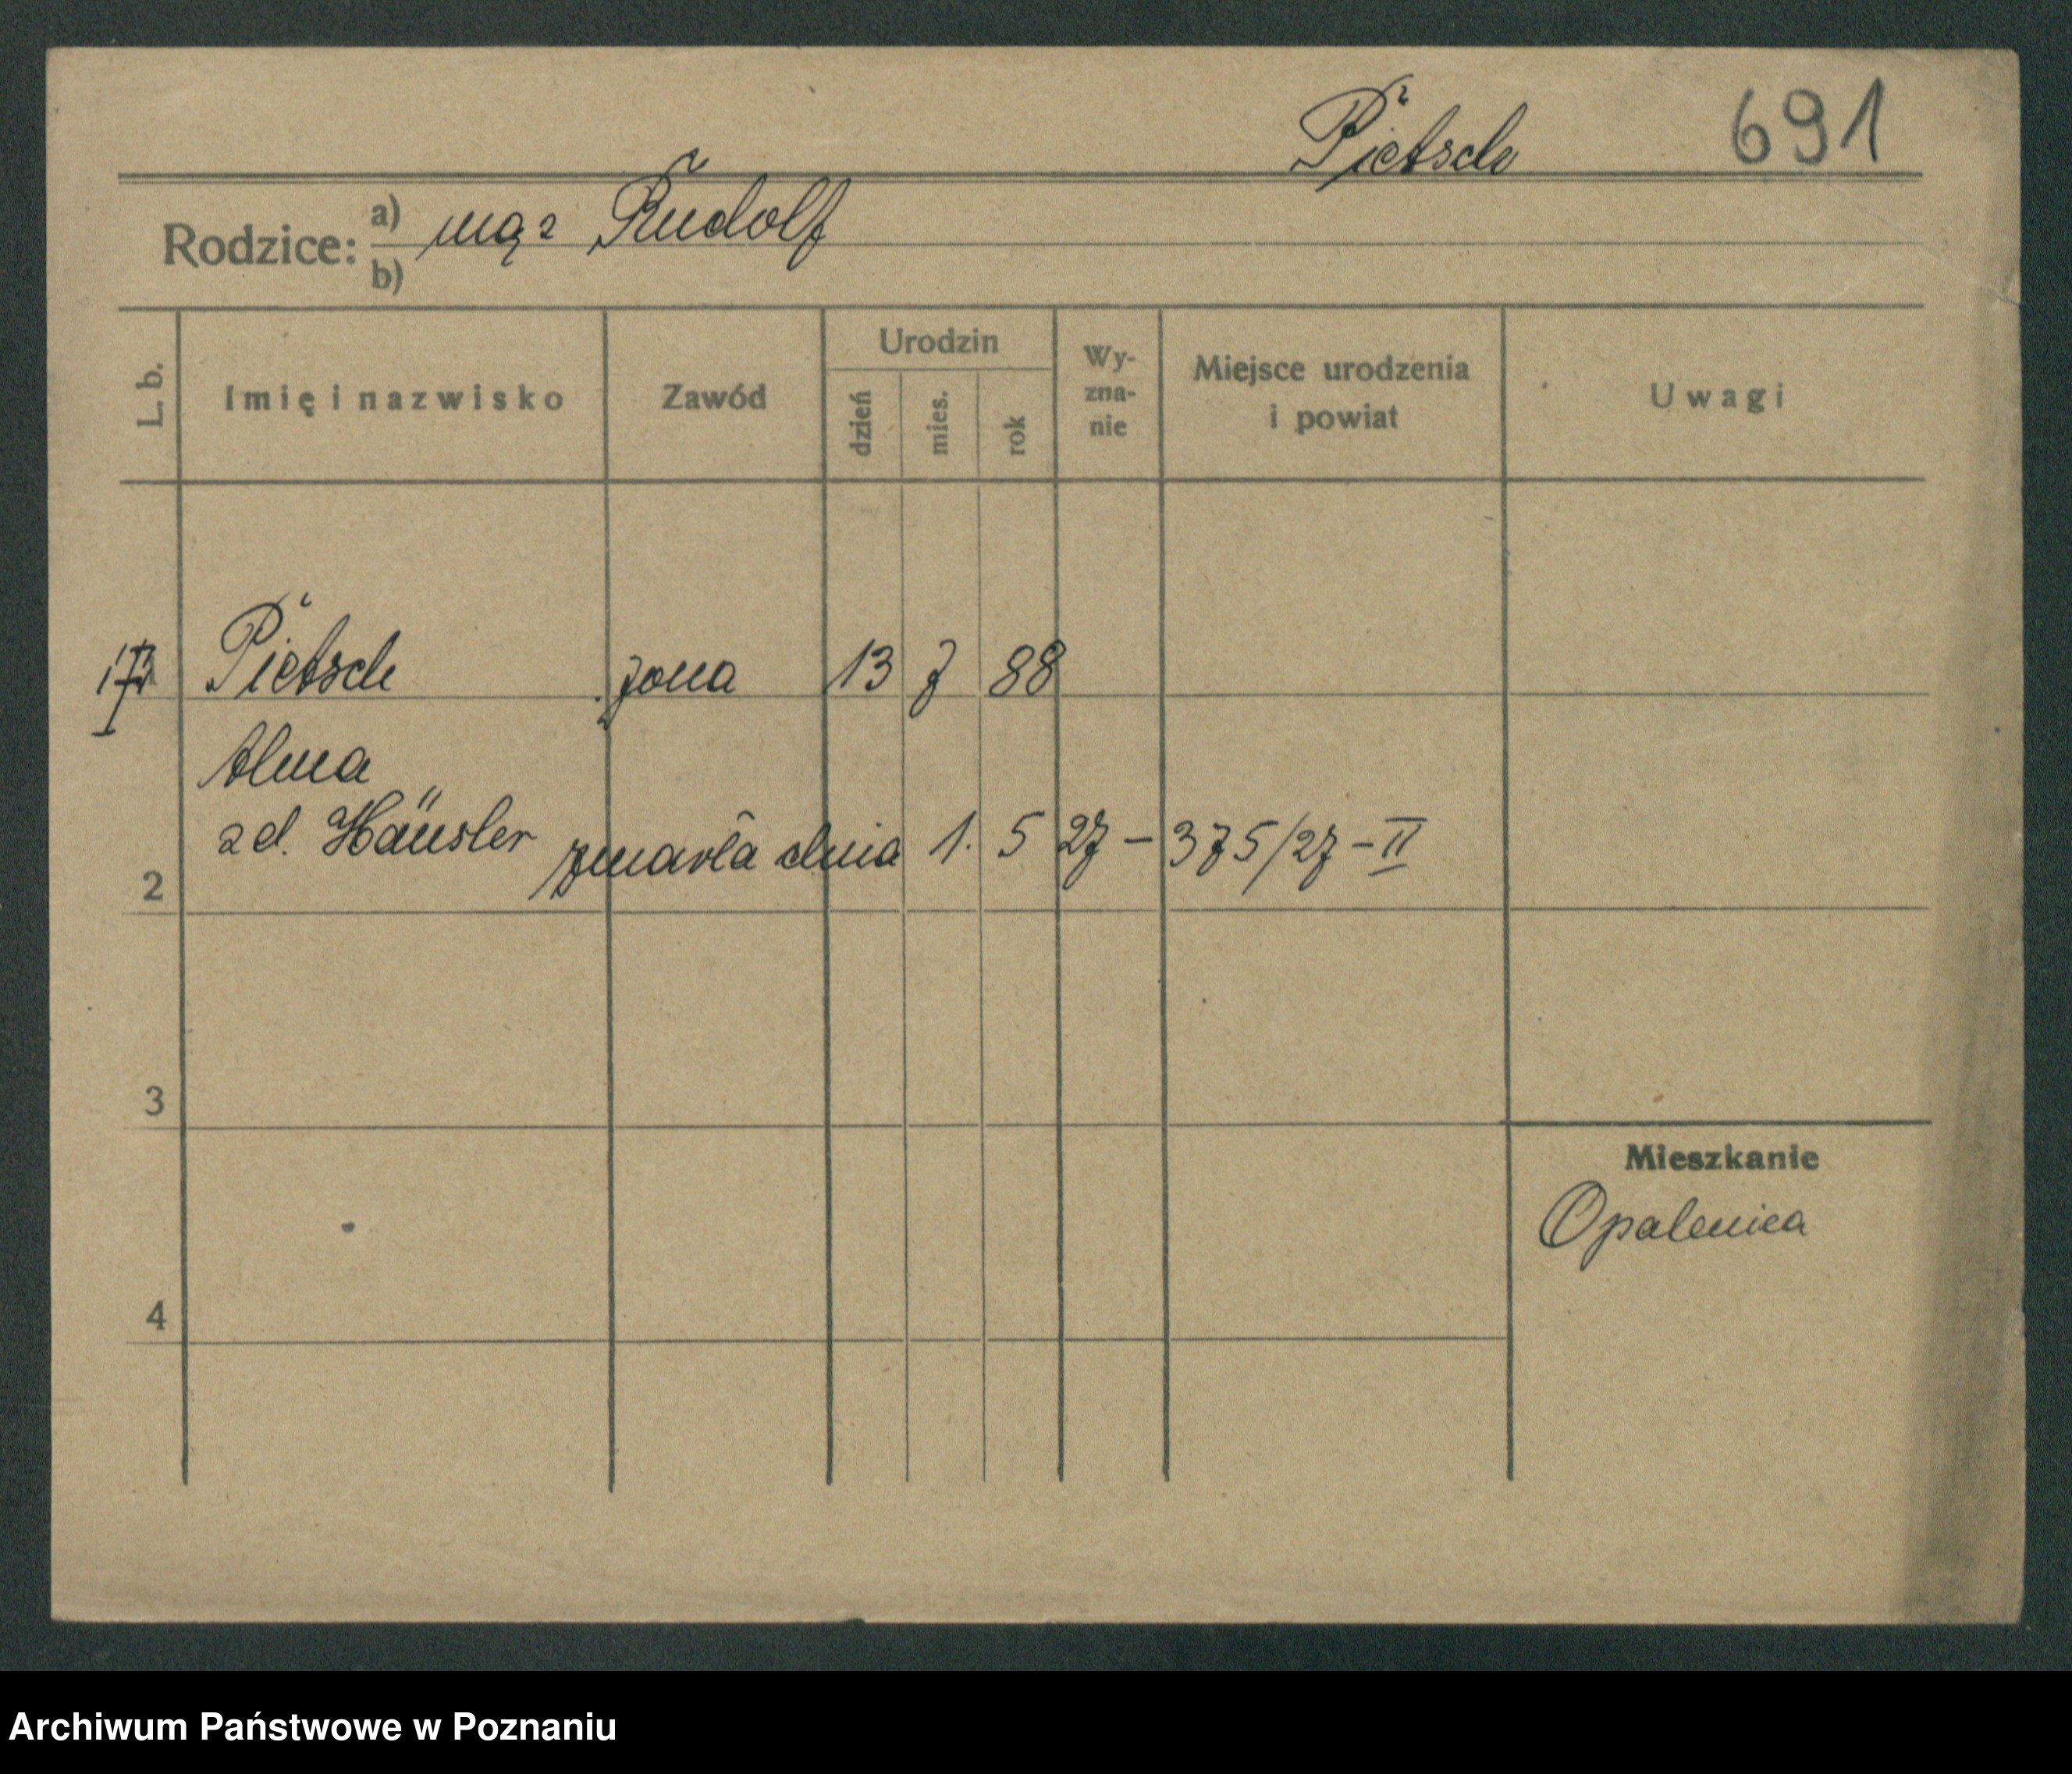 Pietsch 691
Rodzice: a) mąż Rudolf
b)
L. b. Imię i nazwisko Zawód Urodzin dzień mies. rok Wy-zna-nie Miejsce urodzenia i powiat Uwagi
Pietsch żona 13 7 88
Alma
zd. Häusler zmarła dnia 1. 5 27 – 375/27 – II
2
3
Mieszkanie
Opalenica
4
Archiwum Państwowe w Poznaniu